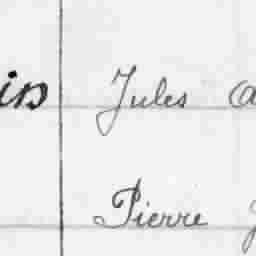 Jules
Pierre